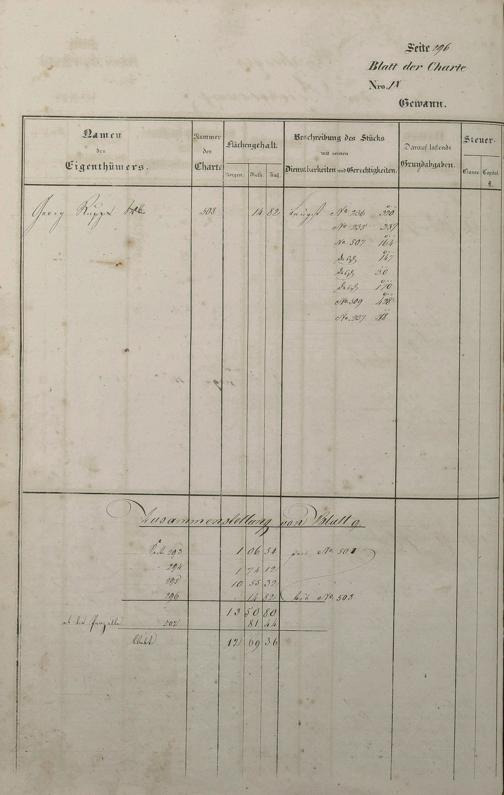 Seite 296
Blatt der Charte
Nro. IX
Gewann.
Namen des Eigenthümers.
Nummer der Charte
Flächengehalt.
Morgen. Ruth. Fuß.
Beschreibung des Stücks mit seinen Dienstbarkeiten und Gerechtigkeiten.
Darauf haftende Grundabgaben.
Steuer-
Classe. Capital.
fl.
Georg 503 14 82 No. 236 320
No. 235 337
No. 507 164
147
50
170
No. 509 428
No. 237
Zusammenstellung von Blatt 9.
Seite 293 1 06 54 No. 501
294 1 74 12
295 10 55 32
296 14 82 bis No. 503
13 50 80
81 44
12 69 36